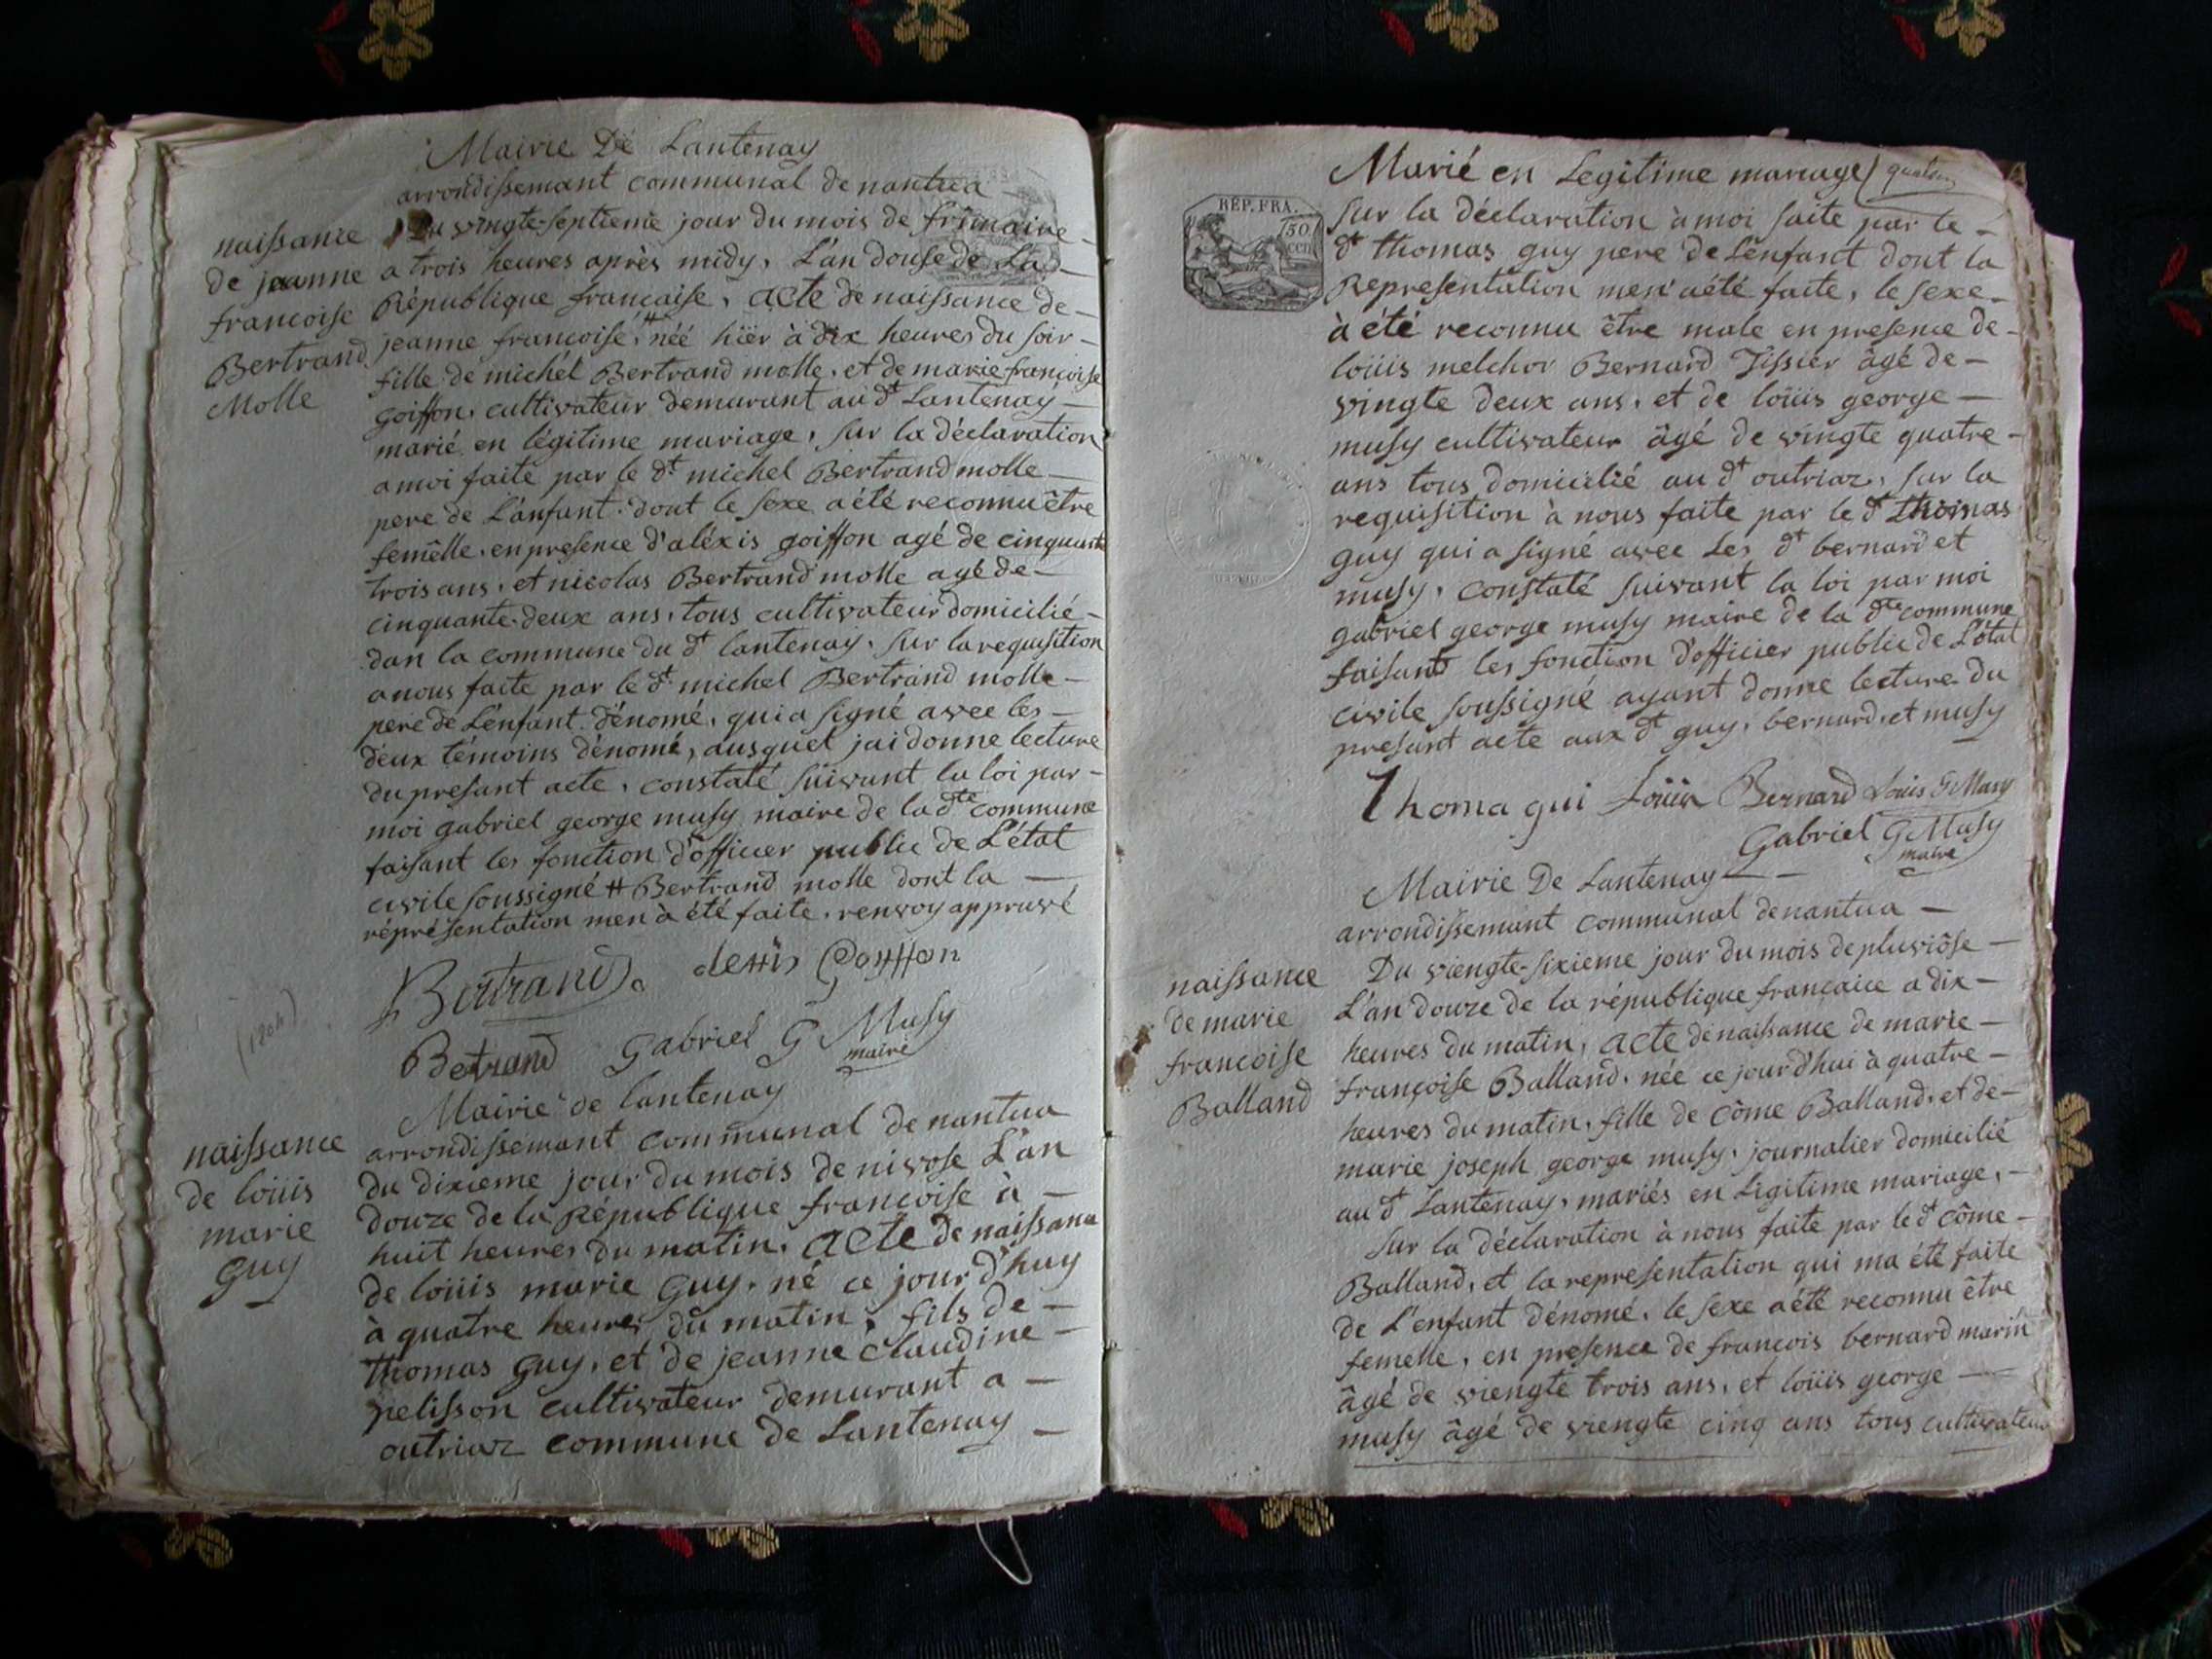 Mairie De Lantenay
arrondissemant communal de nantua
naissance
de jeanne
francoise
Bertrand
Molle
Du vingte-septieme jour du mois de frimaire
a trois heures après midy, L'an douse de La
République francaise, acte de naissance de
jeanne francoise, # néé hiër à dix heures du soir
fille de michél Bertrand molle, et de marie francoise
goiffon, cultivateur demurant au dt Lantenay
marié en légitime mariage, sur la déclaration
a moi faite par le dt michel Bertrand molle
pere de L'anfant dont le sexe a été reconnu être
femêlle, en presence d'aléxis goiffon agé de cinquante
trois ans, et nicolas Bertrand molle agé de
cinquante-deux ans, tous cultivateur domicilié
dan la commune du dt lantenay, sur la requisition
a nous faite par le dt michel Bertrand molle
pere de L'énfant dénomé, qui a signé avec les
deux témoins dénomé, ausquel jai donne lecture
du presant acte, constaté süivant la loi par
moi gabriel george musy maire de la dte commune
faisant les fonction d'officier public de L'état
civile soussigné # Bertrand molle dont la
réprésentation men à été faite, renvoy appruvé
Bertrand
Goiffon
Betrand Gabriel G Musy
maire
(1804)
Mairie de lantenay
arrondissemant communal de nantua
naissance
de loüis
marie
Guy
du dixieme jour du mois de nivose L'an
douze de la République francoise à
huit heures du matin, acte de naissance
de loüis marie Guy, né ce jour d'huy
à quatre heures du matin, fils de
thomas Guy, et de jeanne claudine
pelisson cultivateur demurant a
outriaz commune de Lantenay
Marié en Legitime mariage
REP. FRA.
50
cen
sur la déclaration à moi faite par le
dt thomas guy pere de L'énfant dont la
Representation men a été faite, le sexe
à été reconnu être male en presence de
loüis melchor Bernard Tissier âgé de
vingte deux ans, et de loüis george
musy cultivateur âgé de vingte quatre
ans tous domicilié au dt outriaz, sur la
requisition à nous faite par le dt thomas
guy qui a signé avec Les dt bernard et
musy, constaté suivant la loi par moi
gabriel george musy maire de la dte commune
faisant les fonction d'officier public de L'état
civile soussigné ayant donne lecture du
presant acte aux dt guy, bernard, et musy
Thoma gui Loüis Bernard Louis G Musy
Gabriel G Musy
maire
Mairie De Lantenay
arrondissemant communal de nantua
naissance
de marie
francoise
Balland
Du viengte-sixieme jour du mois de pluviôse
L'an douze de la république francaice a dix
heures du matin, acte de naissance de marie
françoise Balland, née ce jourd'hui à quatre
heures du matin, fille de côme Balland, et de
marie joseph george musy, journalier domicilié
au dt Lantenay, mariés en Légitime mariage,
sur la déclaration à nous faite par le dt côme
Balland, et la representation qui ma été faite
de L'enfant dénomé, le sexe a été reconnu être
femelle, en presence de francois bernard marin
âgé de viengte trois ans, et loüis george
musy âgé de viengte cinq ans tous cultivateur